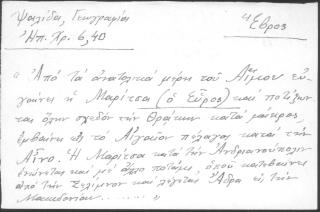 Ψαλίδα, Γεωγραφία
Ἠπ. Χρ. 6, 40
Ἕβρος
"Ἀπό τά ἀνατολικά μέρη τοῦ Αἵμου εὐ-
γαίνει ἡ Μαρίτσα (ὁ Εὖρος) καί ποτίζον-
τας ὅλην σχεδόν τήν Θράκην κατά μάκρος,
ἐμβαίνει εἰς τό Αἰγαῖον πέλαγος κατά τήν
Αἶνο. Ἡ Μαρίτσα κατά τήν Ἀνδριανούπολιν
ἑνώνεται καί μέ ἄλλο ποτάμι, ὁποῦ κατεβαίνει
ἀπό τήν Σελίμνον καί λέγεται Ἄδρα εἰς τήν
Μακεδονίαν........"